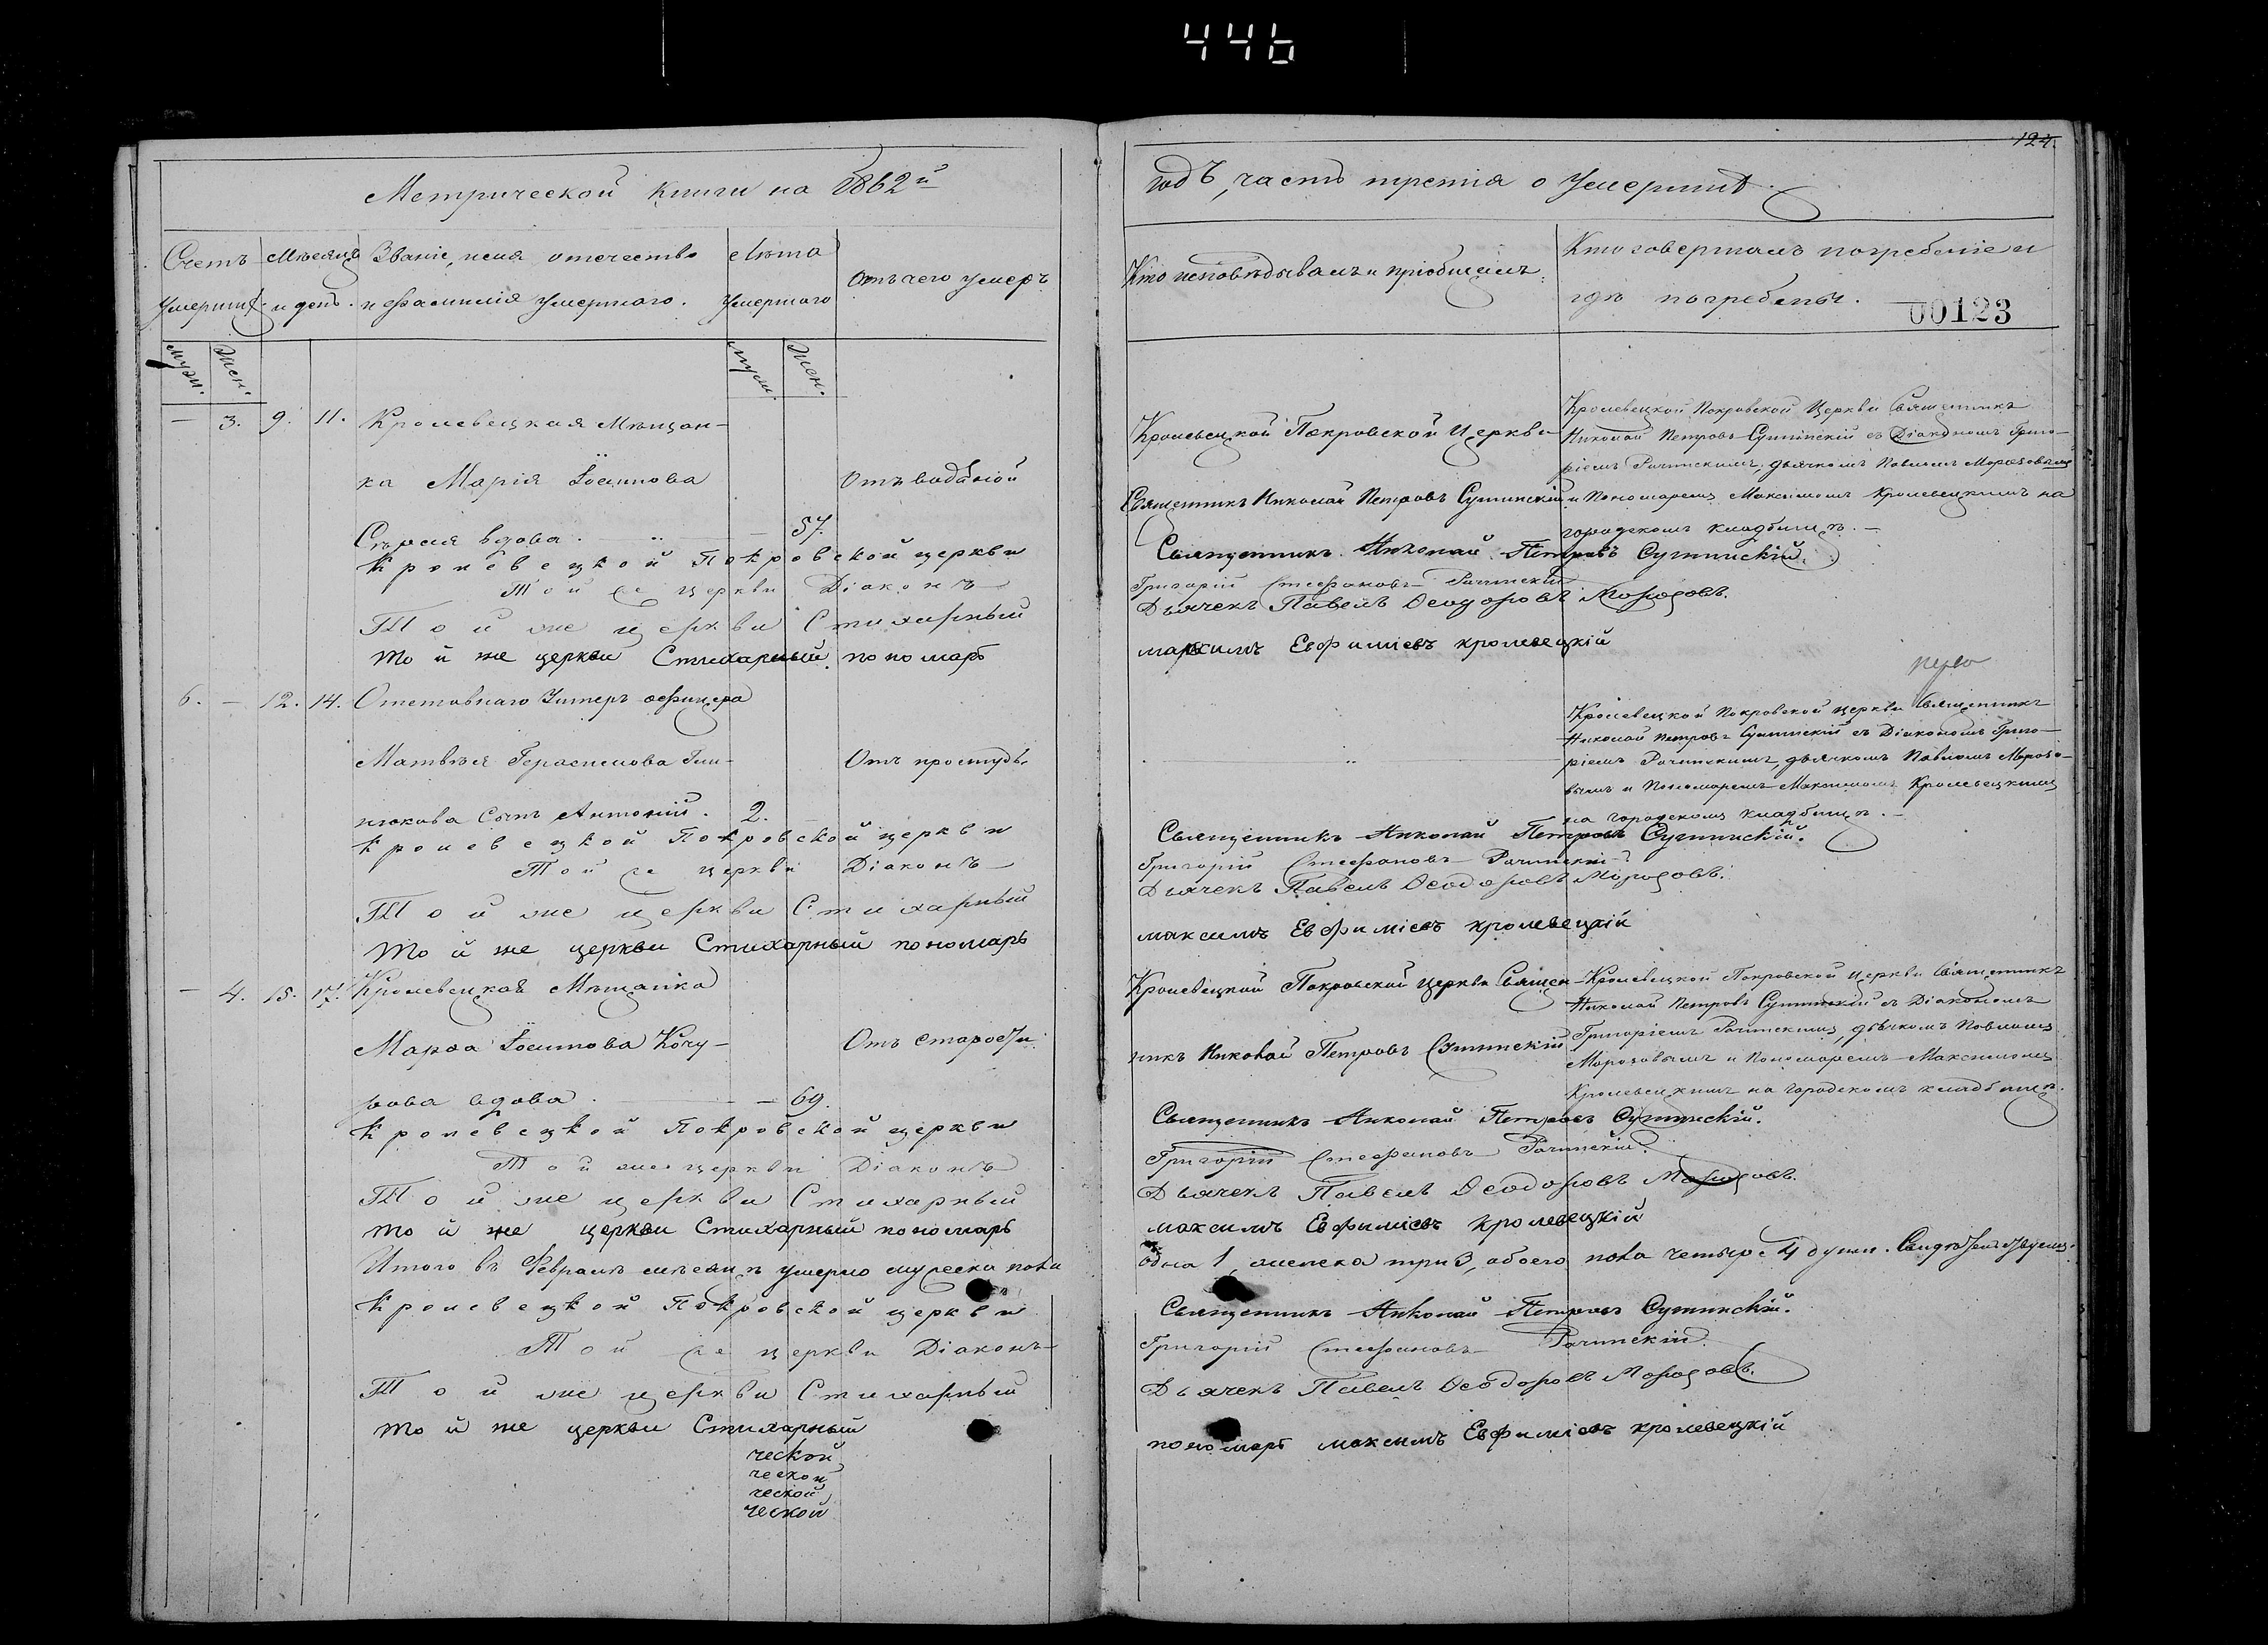 446
124.
Метрической книги на 1862й
годъ, часть третія о умершихъ
Счетъ умершихъ
Мѣсяцъ и день.
Званіе, имя отечество и фамилія умершаго.
Лѣта умершаго
Отъ чего умеръ
Кто исповѣдывалъ и пріобщалъ
Кто совершалъ погребеніе и
гдѣ погребены.
00123
муж.
жен.
муж.
жен.
— 3. 9. 11. Кролевецкая Мѣщан-
ка Марія Іоаннова
вдова. 57.
Отъ водяной
Кролевецкой Покровской Церкви
Священникъ Николай Петровъ
Кролевецкой Покровской Церкви Священникъ
Николай Петровъ съ Діакономъ Григо-
ріемъ дьячкомъ Павломъ Морозовымъ
и Пономаремъ Максимомъ Кролевецкимъ на
городскомъ кладбищѣ.
Кролевецкой Покровской церкви Священникъ Николай Петровъ
Той же церкви Діаконъ Григорій Стефановъ
Той же церкви Стихарный Дьячекъ Павелъ Ѳеодоровъ Морозовъ.
той же церкви Стихарный пономарь максимъ Евфиміевъ кролевецкій
6. — 12. 14. Отставнаго Унтеръ офицера
Матвѣя Герасимова
сынъ Антоній. 2.
Отъ простуды
Кролевецкой Покровской церкви Священникъ
Николай Петровъ съ Діакономъ Григо-
ріемъ дьячкомъ Павломъ Морозо-
вымъ и Пономаремъ Максимомъ Кролевецкимъ
на городскомъ кладбищѣ.
Кролевецкой Покровской церкви Священникъ Николай Петровъ
Той же церкви Діаконъ Григорій Стефановъ
Той же церкви Стихарный Дьячекъ Павелъ Ѳеодоровъ Морозовъ.
той же церкви Стихарный пономарь максимъ Евфиміевъ кролевецкій
— 4. 15. 17. Кролевецкая Мѣщанка
Марѳа Іоаннова
вдова. — 69.
Отъ старости
Кролевецкой Покровской церкви Священ-
никъ Николай Петровъ
Кролевецкой Покровской церкви Священникъ
Николай Петровъ съ Діакономъ
Григоріемъ дьячкомъ Павломъ
Морозовымъ и Пономаремъ Максимомъ
Кролевецкимъ на городскомъ кладбищѣ.
Кролевецкой Покровской церкви Священникъ Николай Петровъ
Той же церкви Діаконъ Григорій Стефановъ
Той же церкви Стихарный Дьячекъ Павелъ Ѳеодоровъ Морозовъ.
той же церкви Стихарный пономарь максимъ Евфиміевъ кролевецкій
Итого въ Февралѣ мѣсяцѣ умерло мужеска пола
одна 1, женска три 3, обоего пола четыре 4 души.
Кролевецкой Покровской церкви Священникъ Николай Петровъ
Той же церкви Діаконъ Григорій Стефановъ
Той же церкви Стихарный Дьячекъ Павелъ Ѳеодоровъ Морозовъ.
той же церкви Стихарный пономарь максимъ Евфиміевъ кролевецкій
ческой
ческой
ческой
ческой